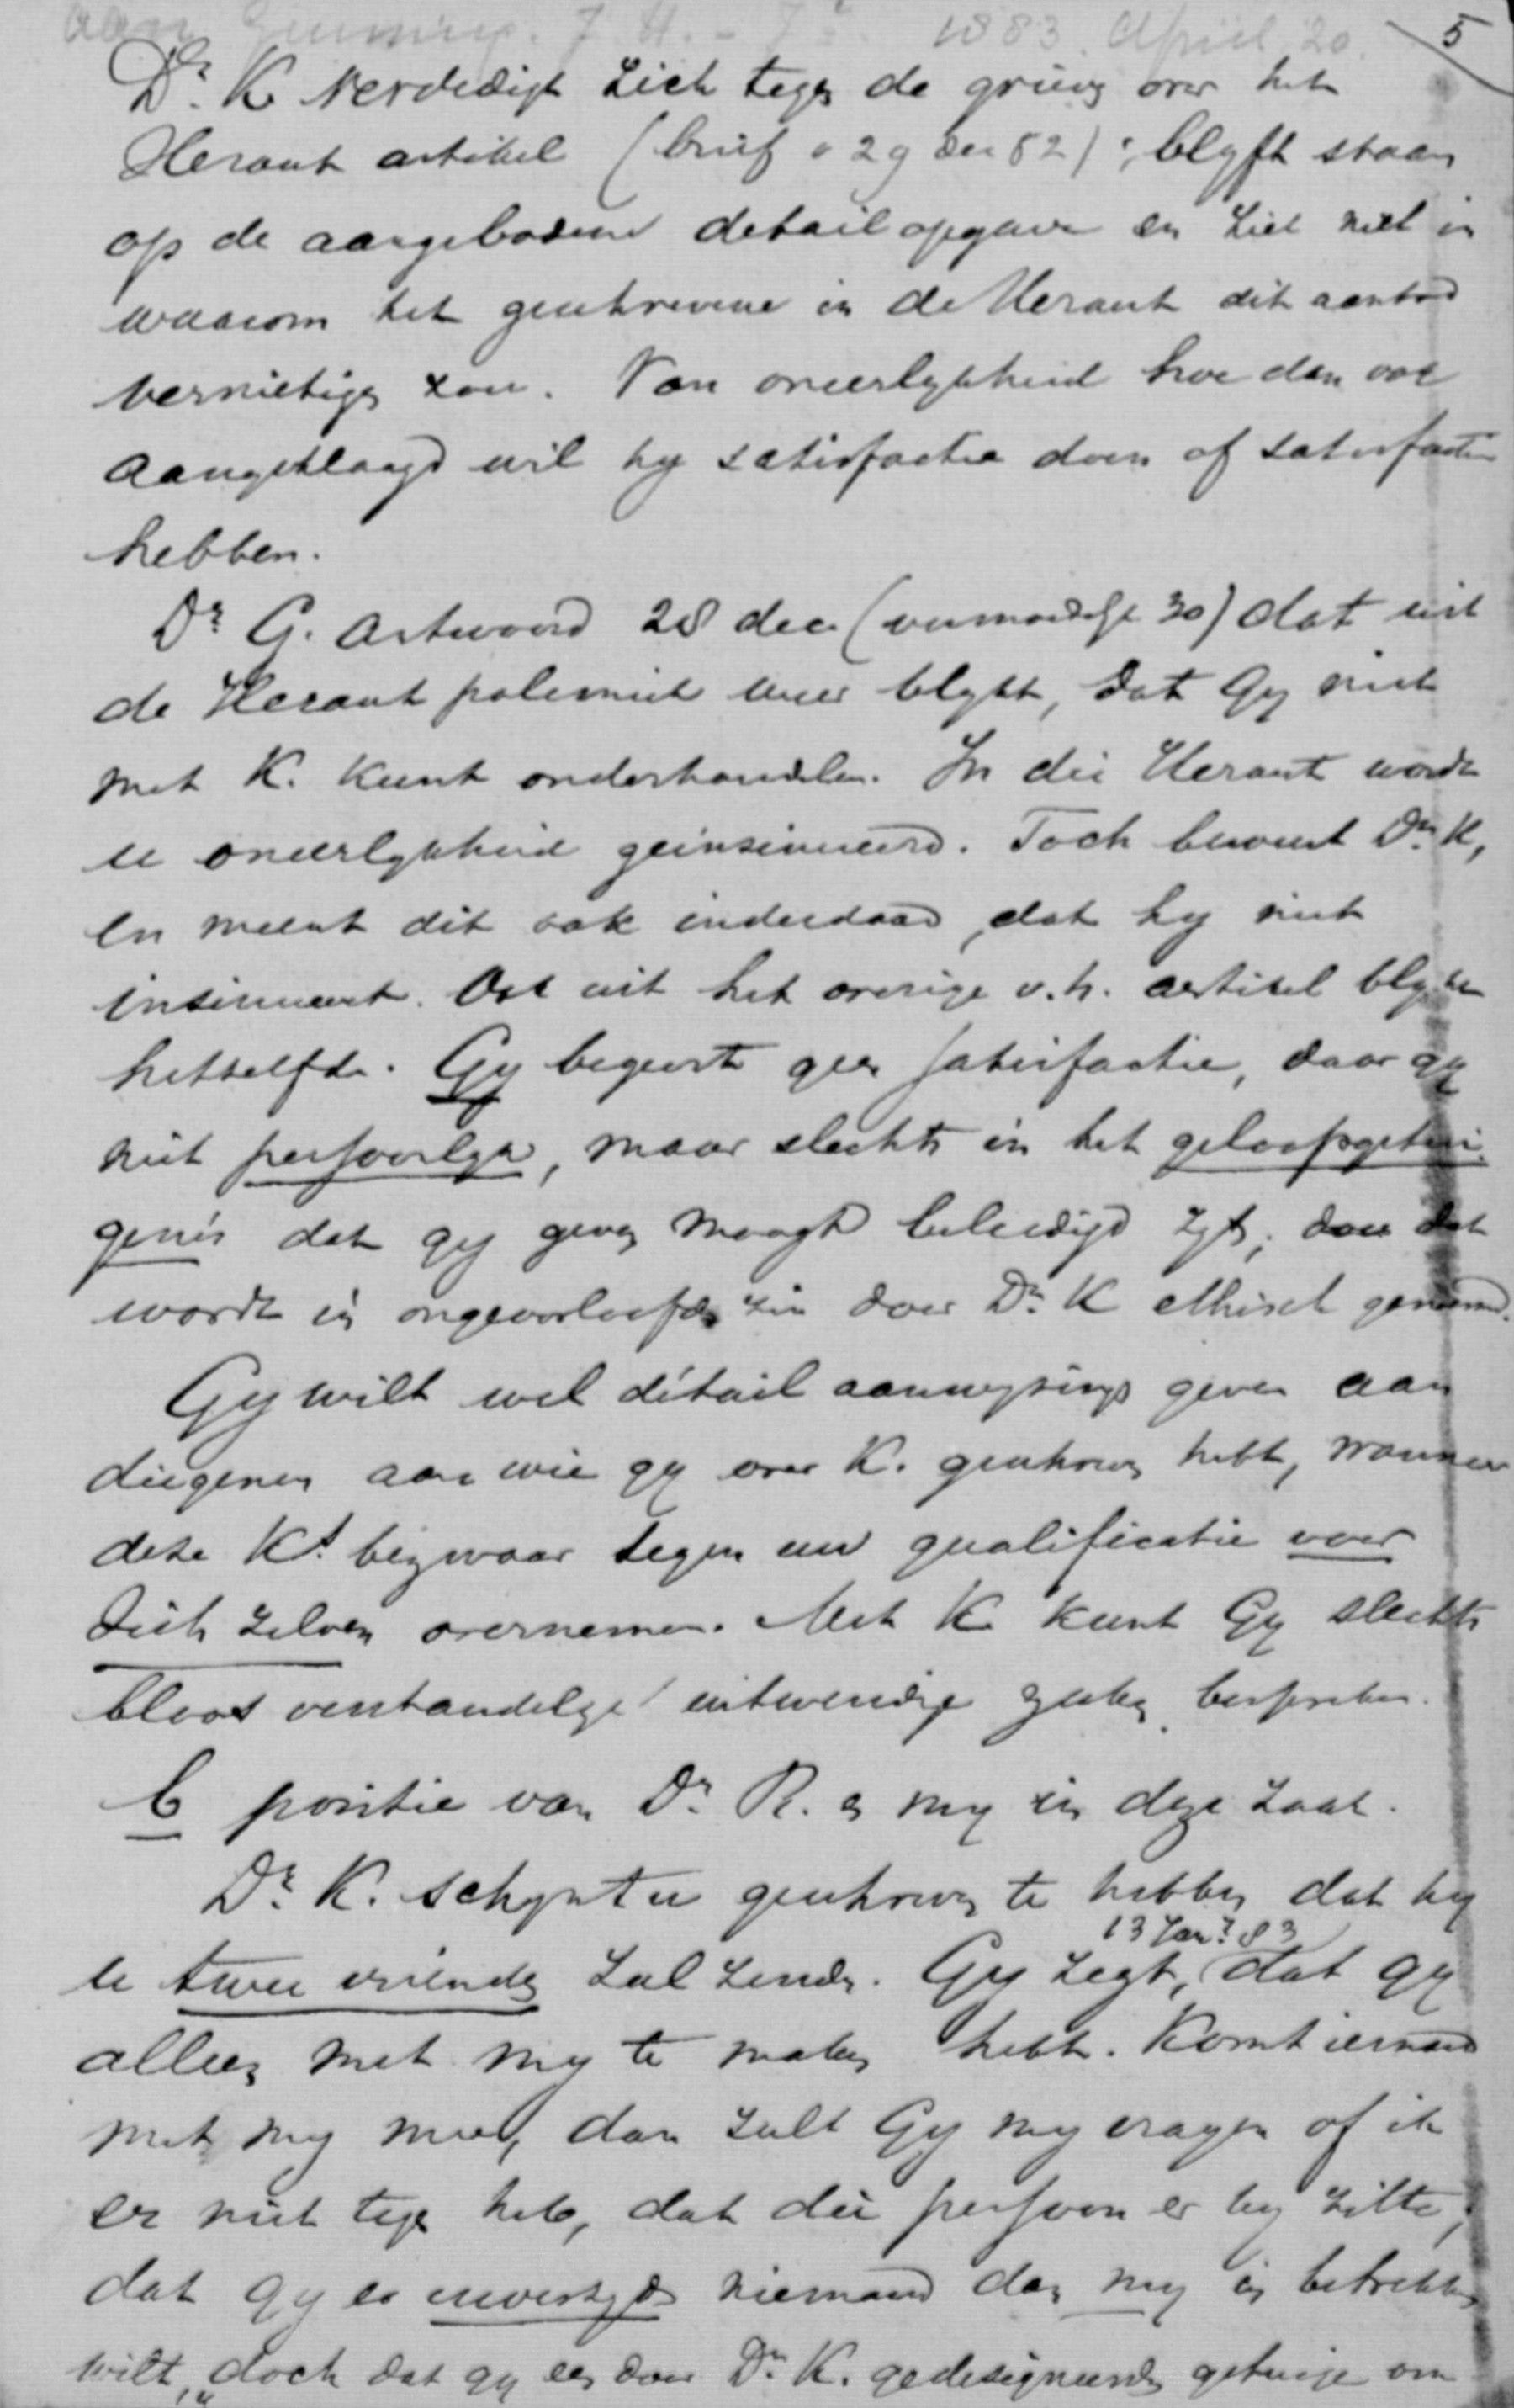 aan Gunning. J. H. - Jr. 1883. April 20. 5
Dr. K verdedigt zich tegen de grieve over het
Heraut artikel (brief v 29 Dec 82); blyft staan
op de aangeboden detail opgave en ziet niet in
waarom het geschrevene in de Heraut dit aanbod
vernietigen zou. Van oneerlykheid hoe dan ook
aangeklaagd wil hy satisfactie doen of satisfactie
hebben.
Dr G. antwoord 28 dec (vermoedelyk 30) dat uit
de Heraut polemiek weer blykt, dat Gy niet
met K. kunt onderhandelen. In die Heraut wordt
u oneerlykheid geinsinueerd. Toch beweert Dr. K,
en meent dit ook inderdaad, dat hy niet
insinueert. Ook uit het overige v.h. artikel blykt
hetzelfde. Gy begeert geen satisfactie, daar gy
niet persoonlyk, maar slechts in het geloofsgetui-
genis dat gy geven moogt beleedigd zyt; daar dat
wordt in ongeoorloofden zin door Dr. K ethisch genoemd.
Gy wilt wel détail aanwyzings geven aan
diegenen aan wie gy over K. geschreven hebt, wanneer
deze K's bezwaar tegen uw qualificatie voor
zich zelven overnemen. Met K kunt Gy slechts
bloot verstandelyke uitwendige zaken bespreken.
C positie van Dr. R. en my in deze zaak.
Dr. K. schynt u geschreven te hebben dat hy
13 Jan. 83
u twee vrienden zal zenden. Gy zegt, dat gy
alleen met my te maken hebt. Komt iemand
met my mee, dan zult Gy my vragen of ik
er niet tegen heb, dat die persoon er by zitte;
dat gy er uwerzyds niemand dan my in betrekken
wilt, "doch dat gy een door Dr. K. gedesigneerde getuige om